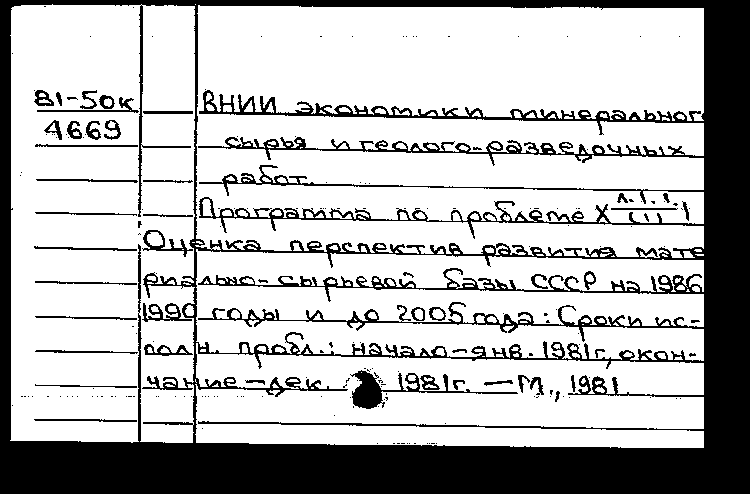 81-50к
4669
ВНИИ экономики минерального
сырья и геолого-разведочных
работ.
Программа по проблеме X
Оценка перспектив развития мате
риально-сырьевой базы СССР на 1986
1990 годы и до 2005 года: Сроки ис-
полн. пробл.: начало-янв. 1981г, окон-
чание-дек. 1981г. — М., 1981.